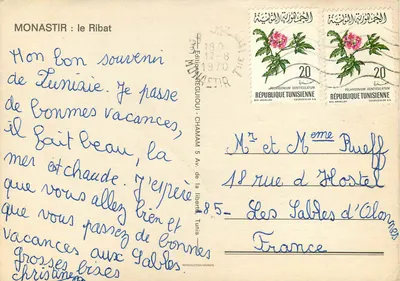 MONASTIR : le Ribat
Mon bon souvenir
de Tunisie. Je passe
de bonnes vacances,
il fait beau, la
mer est chaude. J'espère
que vous allez bien et
que vous passez de bonnes
vacances aux Sables
grosses bises
CHAMAM 5 Av. de la liberté Tunis
MONASTIR
1970
الجمهورية التونسية
20
REPUBLIQUE TUNISIENNE
الجمهورية التونسية
20
REPUBLIQUE TUNISIENNE
Mr et Meme Rueff
18 rue d'Hostel
85- Les Sables d'Olonnes
France